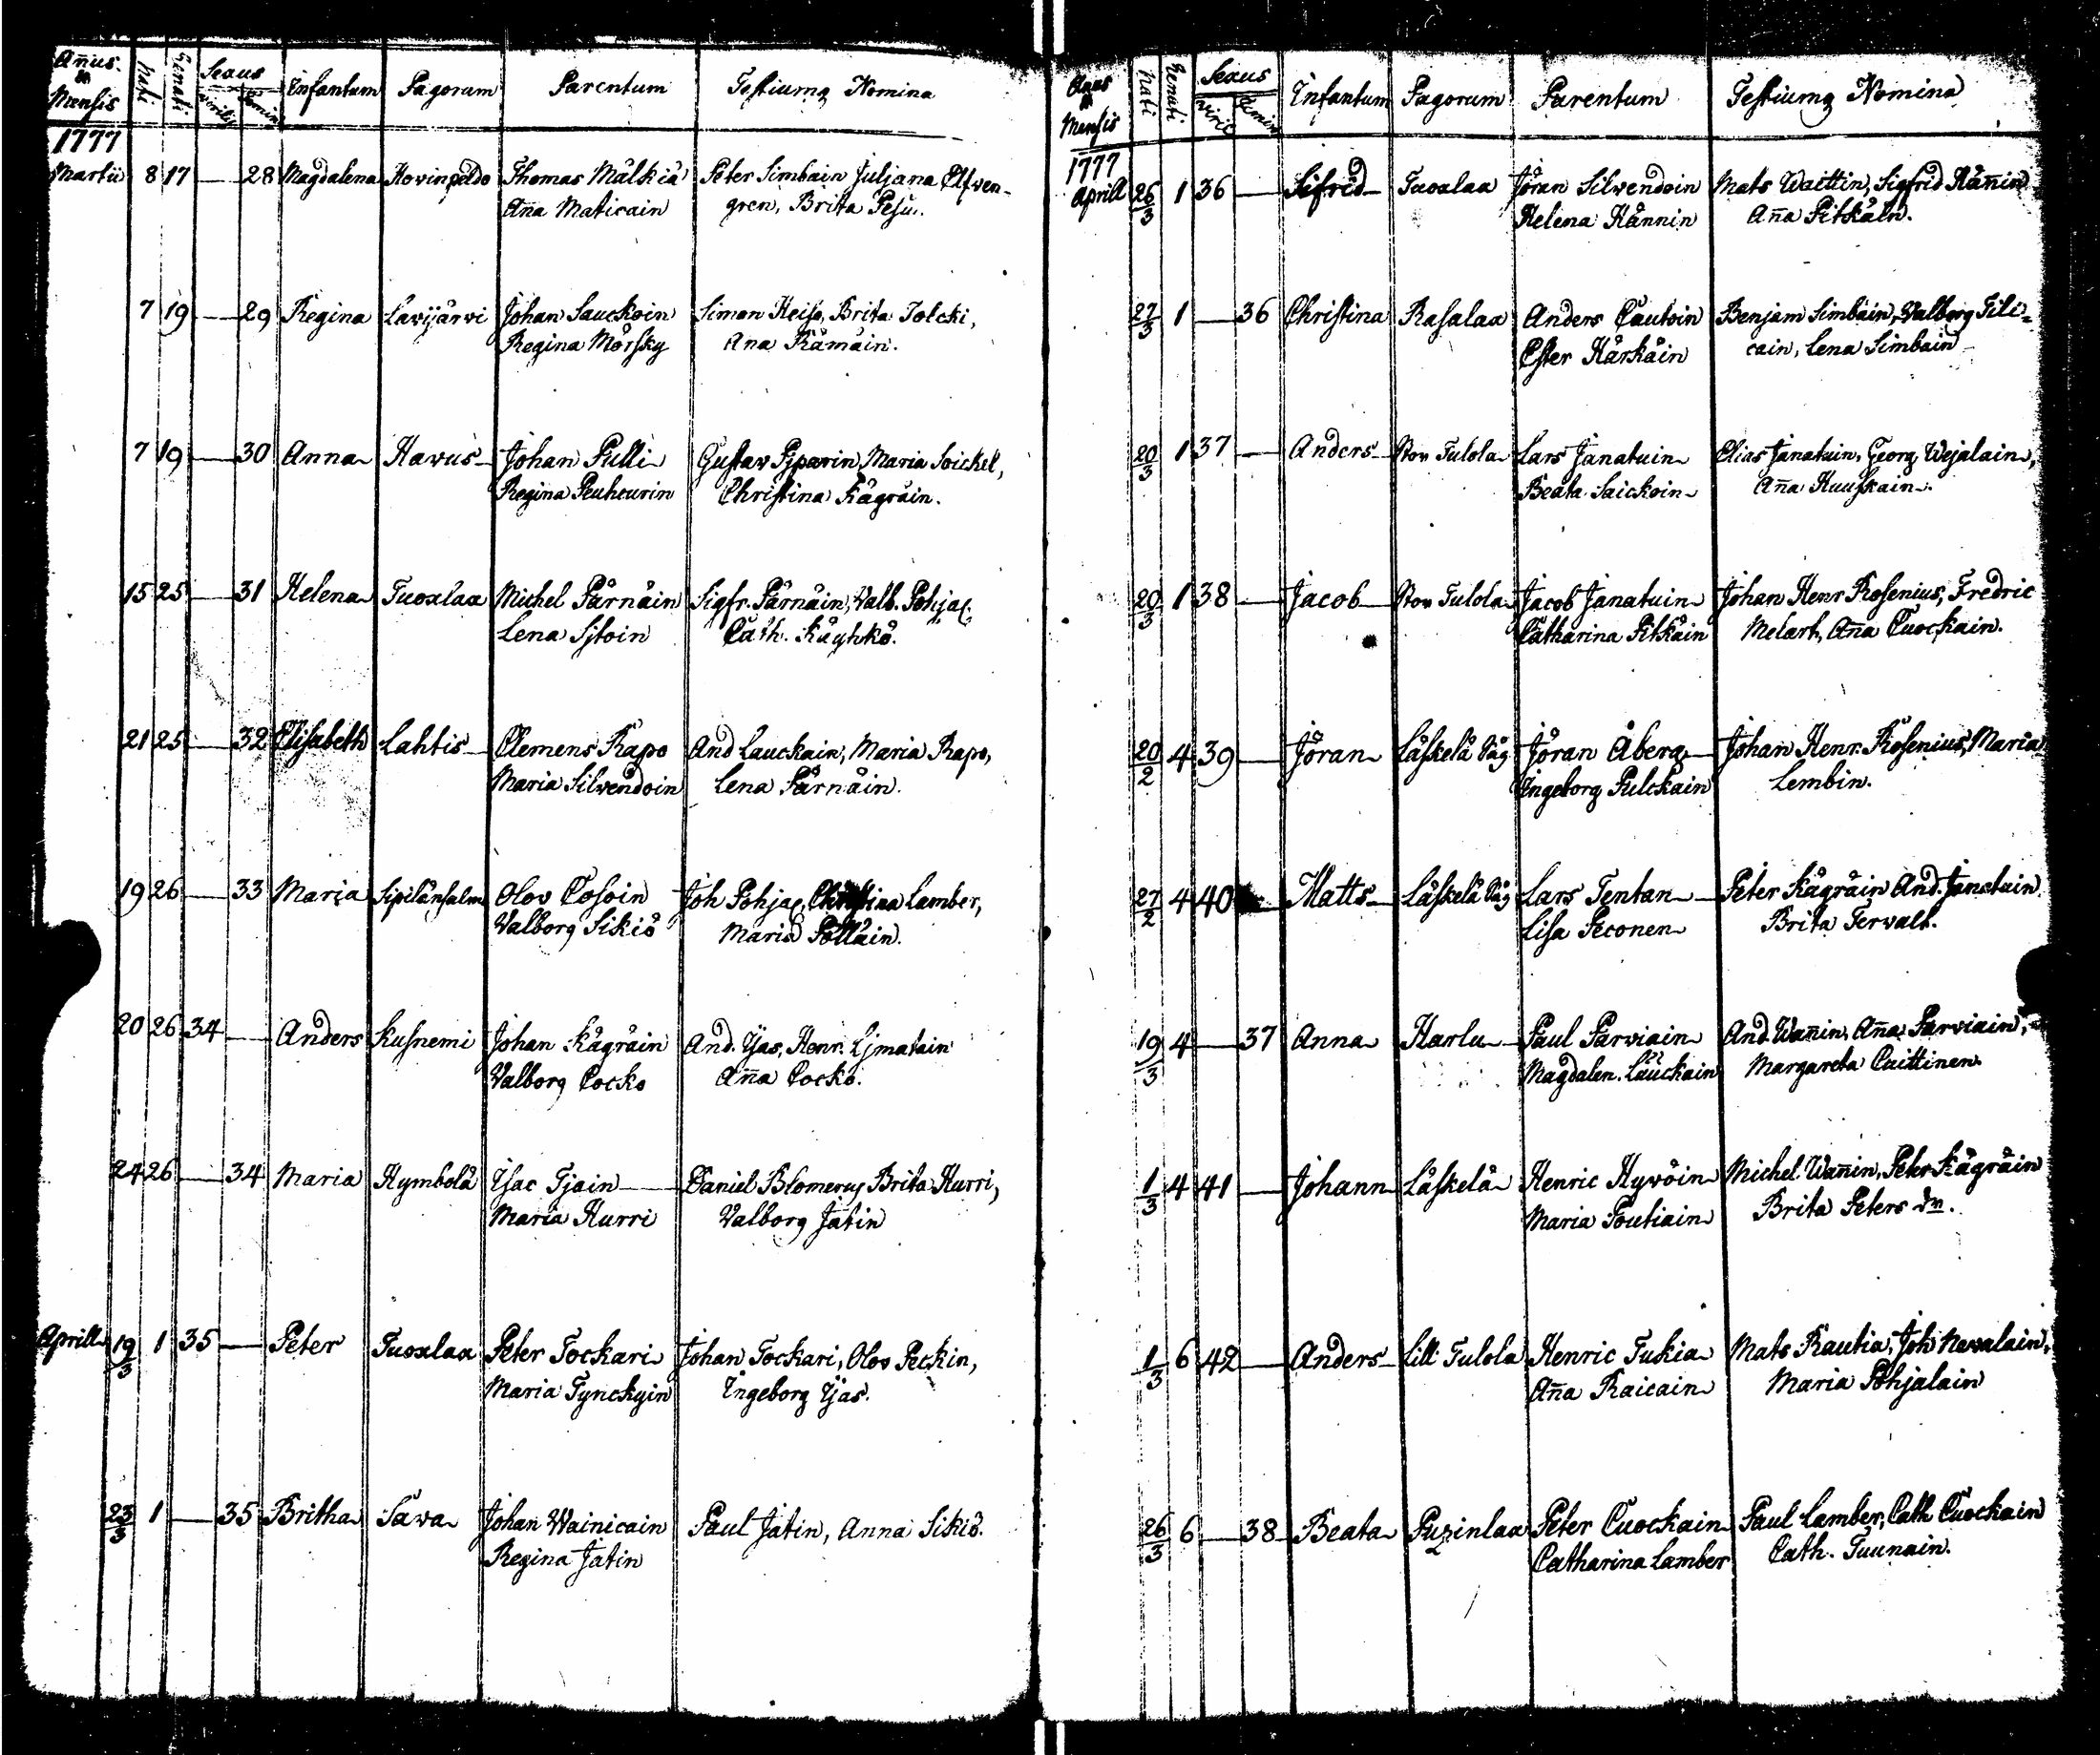 Añus & Mensis Nati Renati Sexus virilis femin Infantum Pagorum Parentum Testiumq Nomina
1777
Martii 8 17 — 28 Magdalena Hovinpeldo Thomas Mälkiä Peter Simbain Juljana Elfven-
Aña Maticain gren, Brita Pesu.
7 19 — 29 Regina Lavijärvi Johan Sauckoin Simon Heisc, Brita Tolcki,
Regina Mörsky Ana Rämäin.
7 19 — 30 Anna Havus Johan Pulli Gustav Piparin, Maria Soickel,
Regina Peuheurin Christina Kägräin.
15 25 — 31 Helena Tuoxlax Michel Pärnäin Sigfr. Pärnäin, Valb. Pohjal.
Lena Sjtoin Cath. Käyhkö.
21 25 — 32 Elisabeth Lahtis Clemens Rapo And Lauckain, Maria Rapo,
Maria Silvendoin Lena Pärnäin.
19 26 — 33 Maria Sipilänsalm Olov Cosoin Joh Pohjal, Christina Lamber,
Valborg Sikiö Maria Pölläin.
20 26 34 — Anders Kusnemi Johan Kägräin And. Ijas, Henr. Ljmatain
Valborg Cocko Aña Cocko.
24 26 — 34 Maria Hymbolä Isac Tjain Daniel Blomerus Brita Hurri,
Maria Hurri Valborg Jatin
Aprill 19/3 1 35 — Peter Tuoxlax Peter Tockari Johan Tockari, Olov Peckin,
Maria Tynckyin Ingeborg Ijas.
23/3 1 — 35 Britha Sava Johan Wainicain Paul Jatin, Anna Sikiö.
Regina Jatin
Añus & Mensis Nati Renati Sexus viril femin Infantum Pagorum Parentum Testiumq Nomina
1777
Aprill 26/3 1 36 — Sifrid Tuoxlax Jöran Silvendoin Mats Waittin, Sigfrid Häñin
Helena Hännin Aña Pitkäin.
27/3 1 — 36 Christina Rasalax Anders Cautoin Benjam Simbäin, Valborg Tili-
Ester Härkäin cain, Lena Simbain
20/3 1 37 — Anders Stor Tulola Lars Janatuin Elias Janatuin, Georg Wejalain,
Beata Saickoin Aña Huuskain.
20/3 1 38 — Jacob Stor Tulola Jacob Janatuin Johan Henr Rosenius, Fredric
Catharina Pitkäin Melart, Aña Cuockain.
20/2 4 39 — Jöran Läskelä Såg Jöran Åberg Johan Henr. Rosenius, Maria
Ingeborg Pulckain Lembin.
27/2 4 40 — Matts Läskelä Såg Lars Tentan Peter Kägräin And. Janatuin
Lisa Peconen Brita Tervalt.
19/3 4 — 37 Anna Harlu Paul Parviain And. Wañin, Aña Parviain,
Magdalen. Lauckain Margareta Caittinen
1/3 4 41 — Johann Läskelä Henric Hyvöin Michel Wañin, Peter Kägräin
Maria Poutiain Brita Peters dn.
1/3 6 42 — Anders Lill Tulola Henric Tukia Mats Rautia, Joh Nevalain,
Aña Raicain Maria Pohjalain
26/3 6 — 38 Beata Puzinlax Peter Cuockain Paul Lamber, Cath Cuockain
Catharina Lamber Cath. Tuunain.